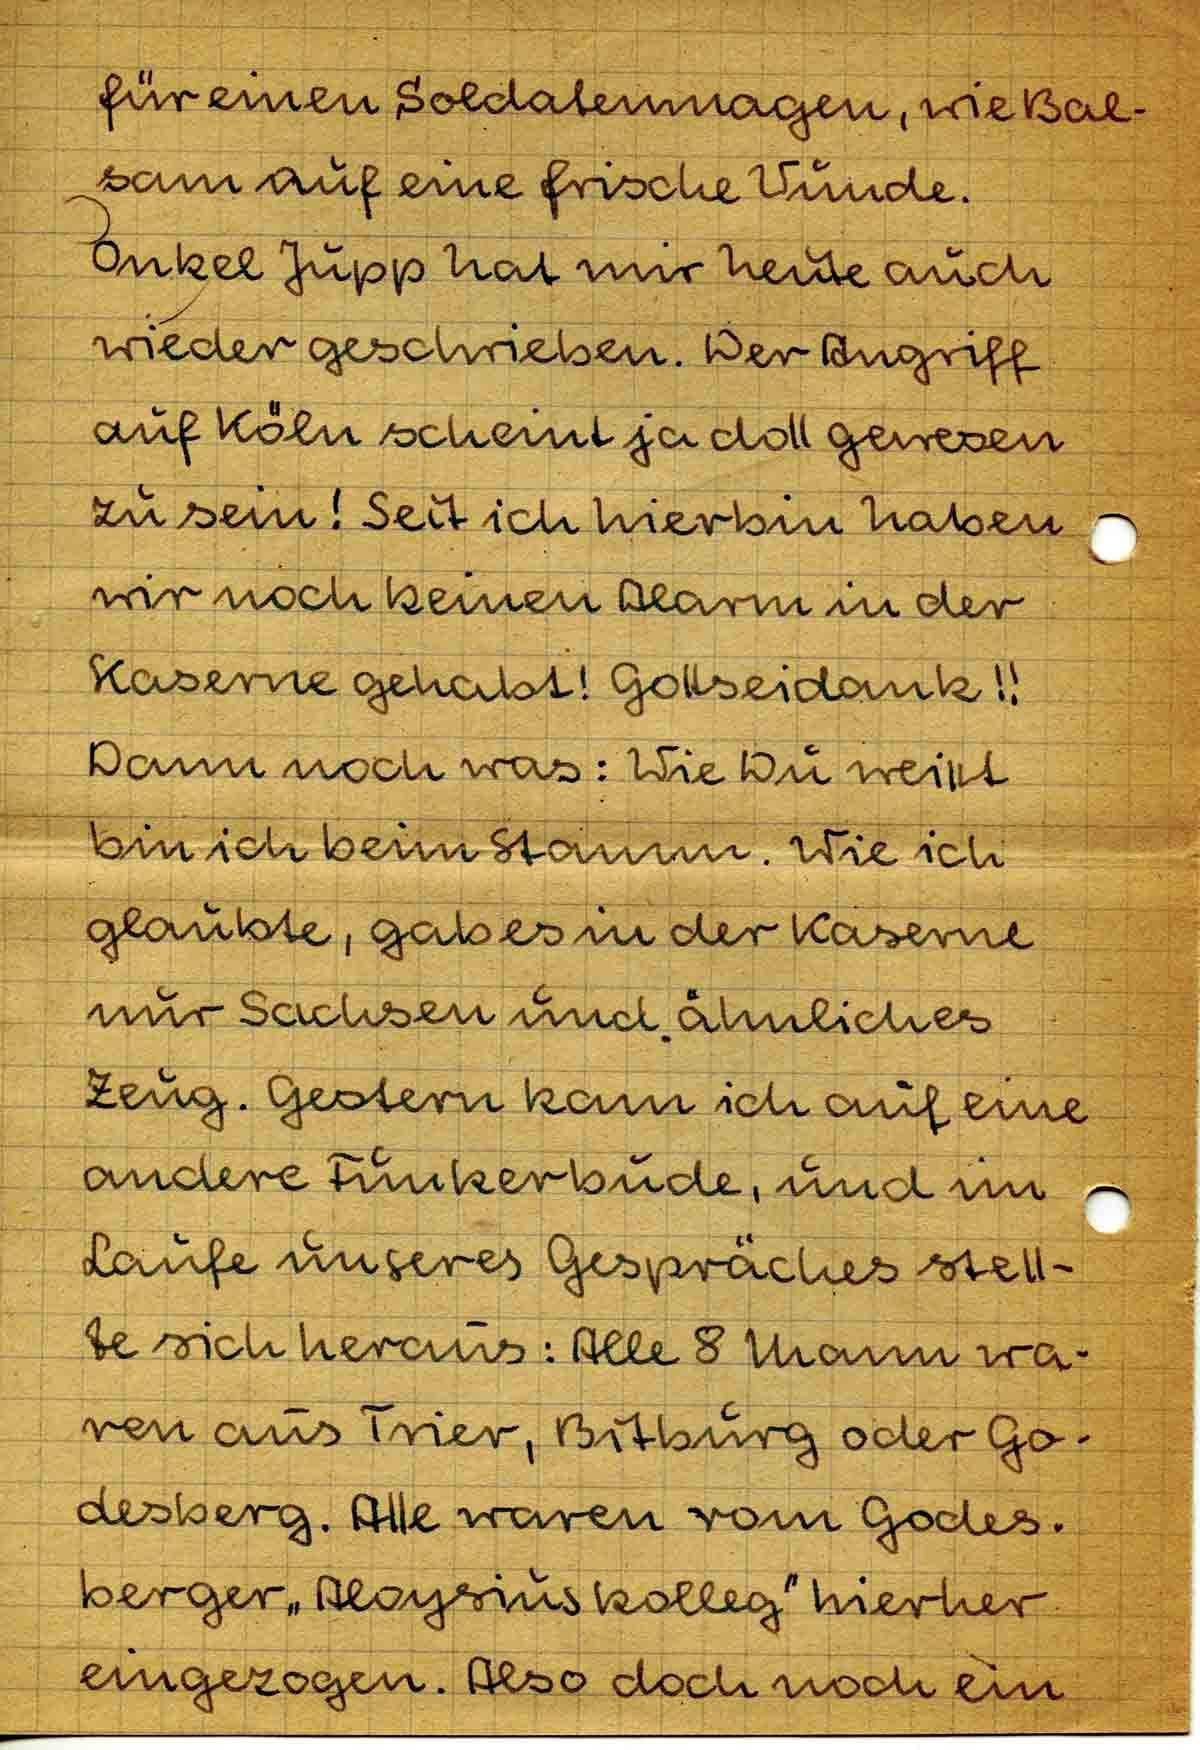 für einen Soldatenmagen, wie Bal-
sam auf eine frische Wunde.
Onkel Jupp hat mir heute auch
wieder geschrieben. Der Angriff
auf Köln scheint ja doll gewesen
zu sein! Seit ich hier bin haben
wir noch keinen Alarm in der
Kaserne gehabt! Gottseidank!!
Dann noch was: Wie Du weißt
bin ich beim Stamm. Wie ich
glaubte, gab es in der Kaserne
nur Sachsen und ähnliches
Zeug. Gestern kam ich auf eine
andere Funkerbude, und im
Laufe unseres Gespräches stell-
te sich heraus: Alle 8 Mann wa-
ren aus Trier, Bitburg oder Go-
desberg. Alle waren vom Godes-
berger „Aloysiuskolleg" hierher
eingezogen. Also doch noch ein